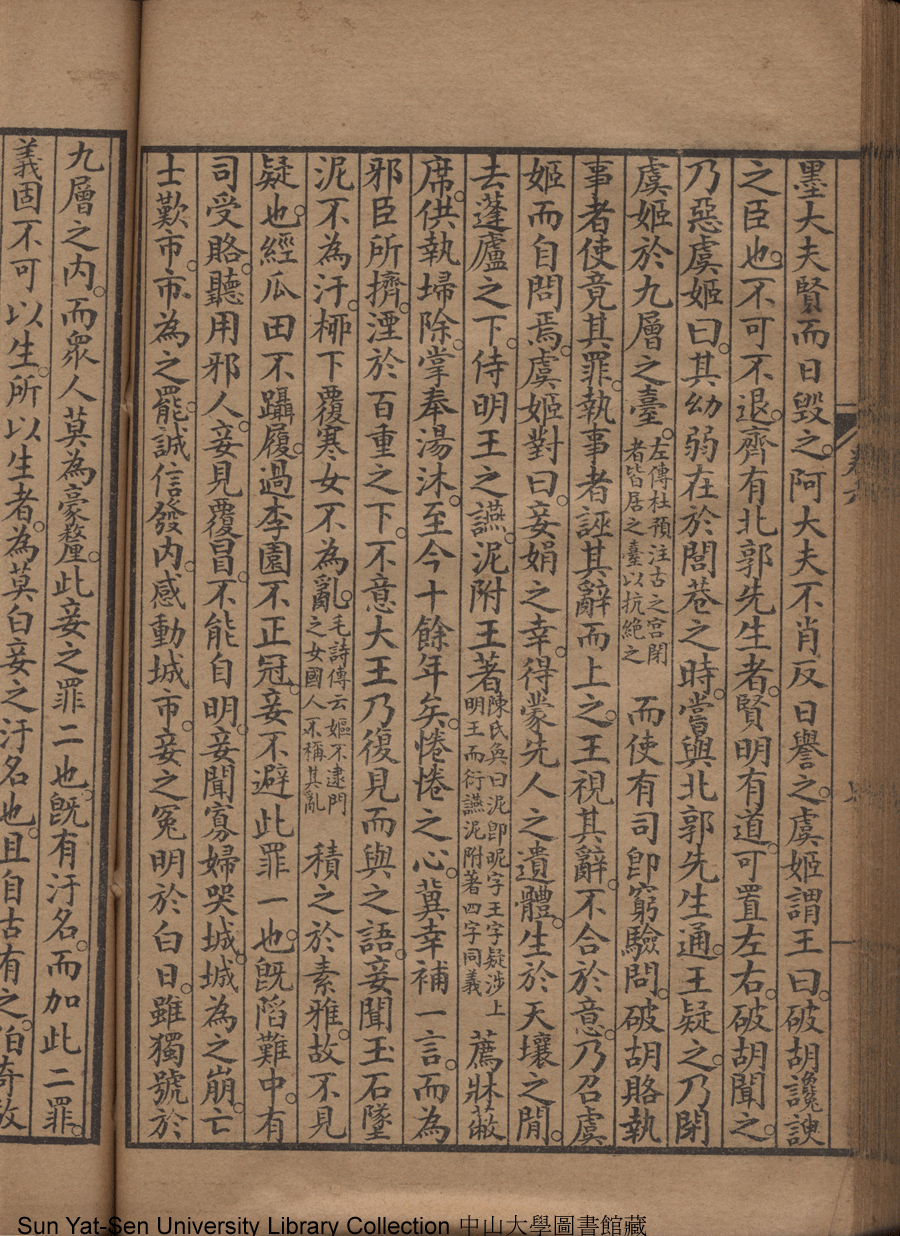 墨大夫賢而日毀之。阿大夫不肖反日譽之。虞姬謂王曰。破胡讒諛
之臣也。不可不退。齊有北郭先生者。賢明有道。可置左右。破胡聞之。
乃惡虞姬曰。其幼弱在於閭巷之時。嘗與北郭先生通。王疑之。乃閉
虞姬於九層之臺。左傳杜預注古之宮閉者皆居之臺以抗絕之 而使有司卽窮驗問。破胡賂執
事者使竟其罪。執事者誣其辭而上之。王視其辭。不合於意。乃召虞
姬而自問焉。虞姬對曰。妾娟之幸。得蒙先人之遺體。生於天壤之閒。
去蓬廬之下。侍明王之讌。泥附王著陳氏奐曰泥卽昵字王字疑涉上明王而衍讌泥附著四字同義 薦牀蔽
席。供執埽除。掌奉湯沐。至今十餘年矣。惓惓之心。冀幸補一言。而為
邪臣所擠。湮於百重之下。不意大王乃復見而與之語。妾聞玉石墜
泥不為汙。桺下覆寒女不為亂。毛詩傳云嫗不逮門之女國人不稱其亂 積之於素雅。故不見
疑也。經瓜田不躡履。過李園不正冠。妾不避此罪一也。旣陷難中。有
司受賂。聽用邪人。妾見覆冒。不能自明。妾聞寡婦哭城。城為之崩。亡
士歎市。市為之罷。誠信發內。感動城市。妾之冤明於白日。雖獨號於
九層之內。而眾人莫為豪釐。此妾之罪二也。旣有汙名。而加此二罪。
義固不可以生。所以生者。為莫白妾之汙名也。且自古有之。伯奇放
Sun Yat-Sen University Library Collection 中山大學圖書館藏